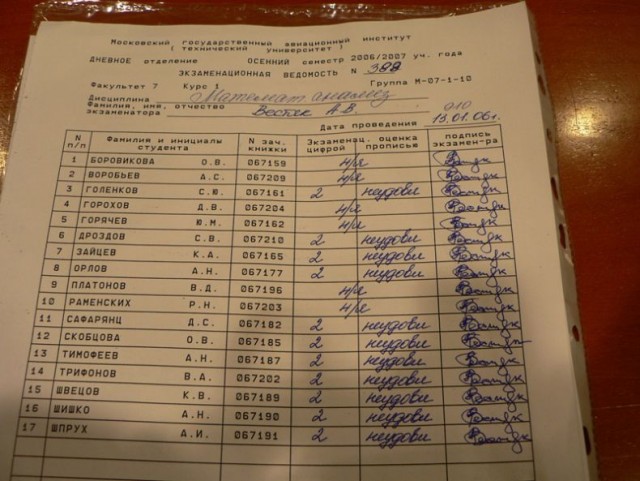 Московский государственный авиационный институт
( технический университет )
ДНЕВНОЕ отделение ОСЕННИЙ семестр 2006/2007 уч. года
ЭКЗАМЕНАЦИОННАЯ ВЕДОМОСТЬ N 388
Факультет 7 Курс 1 Группа М-07-1-10
Дисциплина Математ анализ
Фамилия, имя, отчество
экзаменатора Вестяк А.В.
Дата проведения 13.01.06г.
N п/п Фамилия и инициалы студента N зач. книжки Экзаменац. оценка цифрой прописью подпись экзамен-ра
1 БОРОВИКОВА О.В. 067159 н/я
2 ВОРОБЬЕВ А.С. 067209 н/я
3 ГОЛЕНКОВ С.Ю. 067161 2 неудовл
4 ГОРОХОВ Д.В. 067204 н/я
5 ГОРЯЧЕВ Ю.М. 067162 н/я
6 ДРОЗДОВ С.В. 067210 2 неудовл
7 ЗАЙЦЕВ К.А. 067165 2 неудовл
8 ОРЛОВ А.Н. 067177 2 неудовл
9 ПЛАТОНОВ В.Д. 067196 н/я
10 РАМЕНСКИХ Р.Н. 067203 н/я
11 САФАРЯНЦ Д.С. 067182 2 неудовл
12 СКОБЦОВА О.В. 067185 2 неудовл
13 ТИМОФЕЕВ А.Н. 067187 2 неудовл
14 ТРИФОНОВ В.А. 067202 2 неудовл
15 ШВЕЦОВ К.В. 067189 2 неудовл
16 ШИШКО А.Н. 067190 2 неудовл
17 ШПРУХ А.И. 067191 2 неудовл